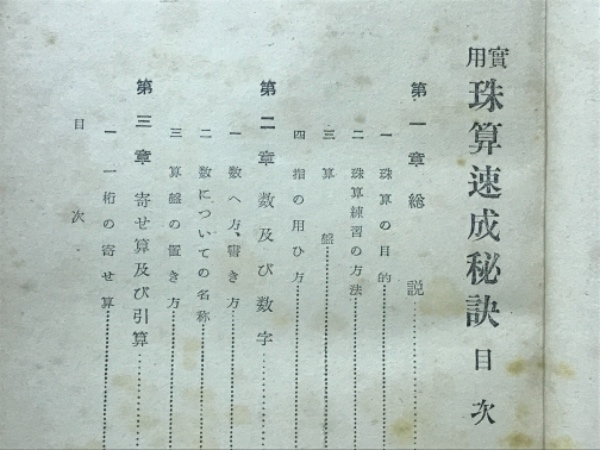 實用 珠算速成秘訣 目次
第一章 総説
一 珠算の目的
二 珠算練習の方法
三 算盤
四 指の用ひ方
第二章 数及び数字
一 数へ方、書き方
二 数についての名称
三 算盤の置き方
第三章 寄せ算及び引算
一 一桁の寄せ算
目次